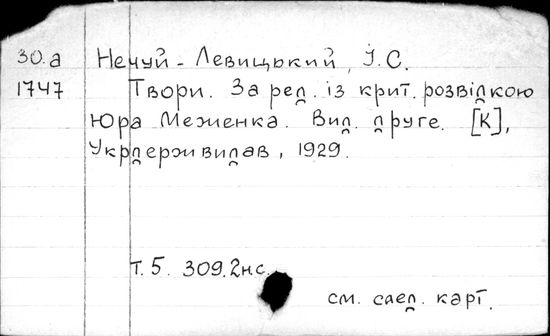 30.а Нечуй-Левицький, І.С.
1747 Твори. За ред. із крит. розвідкою
Юра Меженка. Вид. друге. [К],
Укрдержвидав, 1929.
т. 5. 309.2нс.
см. след. карт.